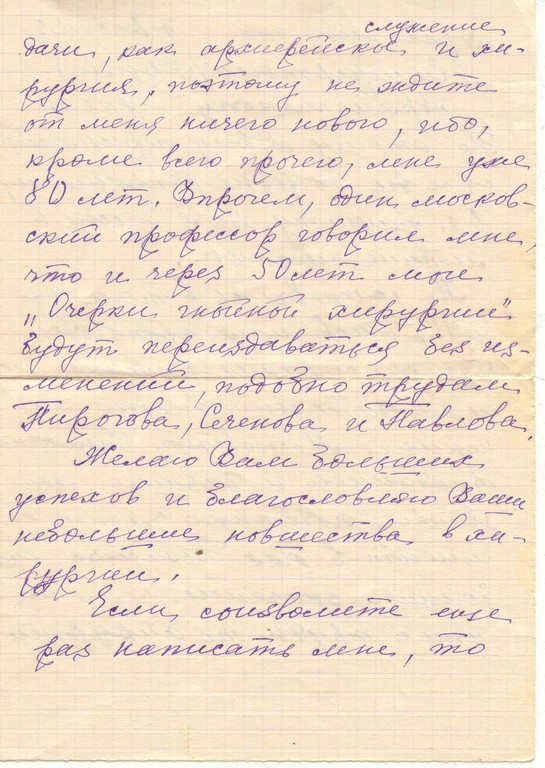 служение
дачи, как архиерейское и хи-
рургия, поэтому не ждите
от меня ничего нового, ибо,
кроме всего прочего, мне уже
80 лет. Впрочем, один москов-
ский профессор говорил мне,
что и через 50 лет мои
„Очерки гнойной хирургии"
будут переиздаваться без из-
менений, подобно трудам
Пирогова, Сеченова и Павлова.
Желаю Вам больших
успехов и благословляю Ваши
небольшие новшества в хи-
рургии.
Если соизволите еще
раз написать мне, то